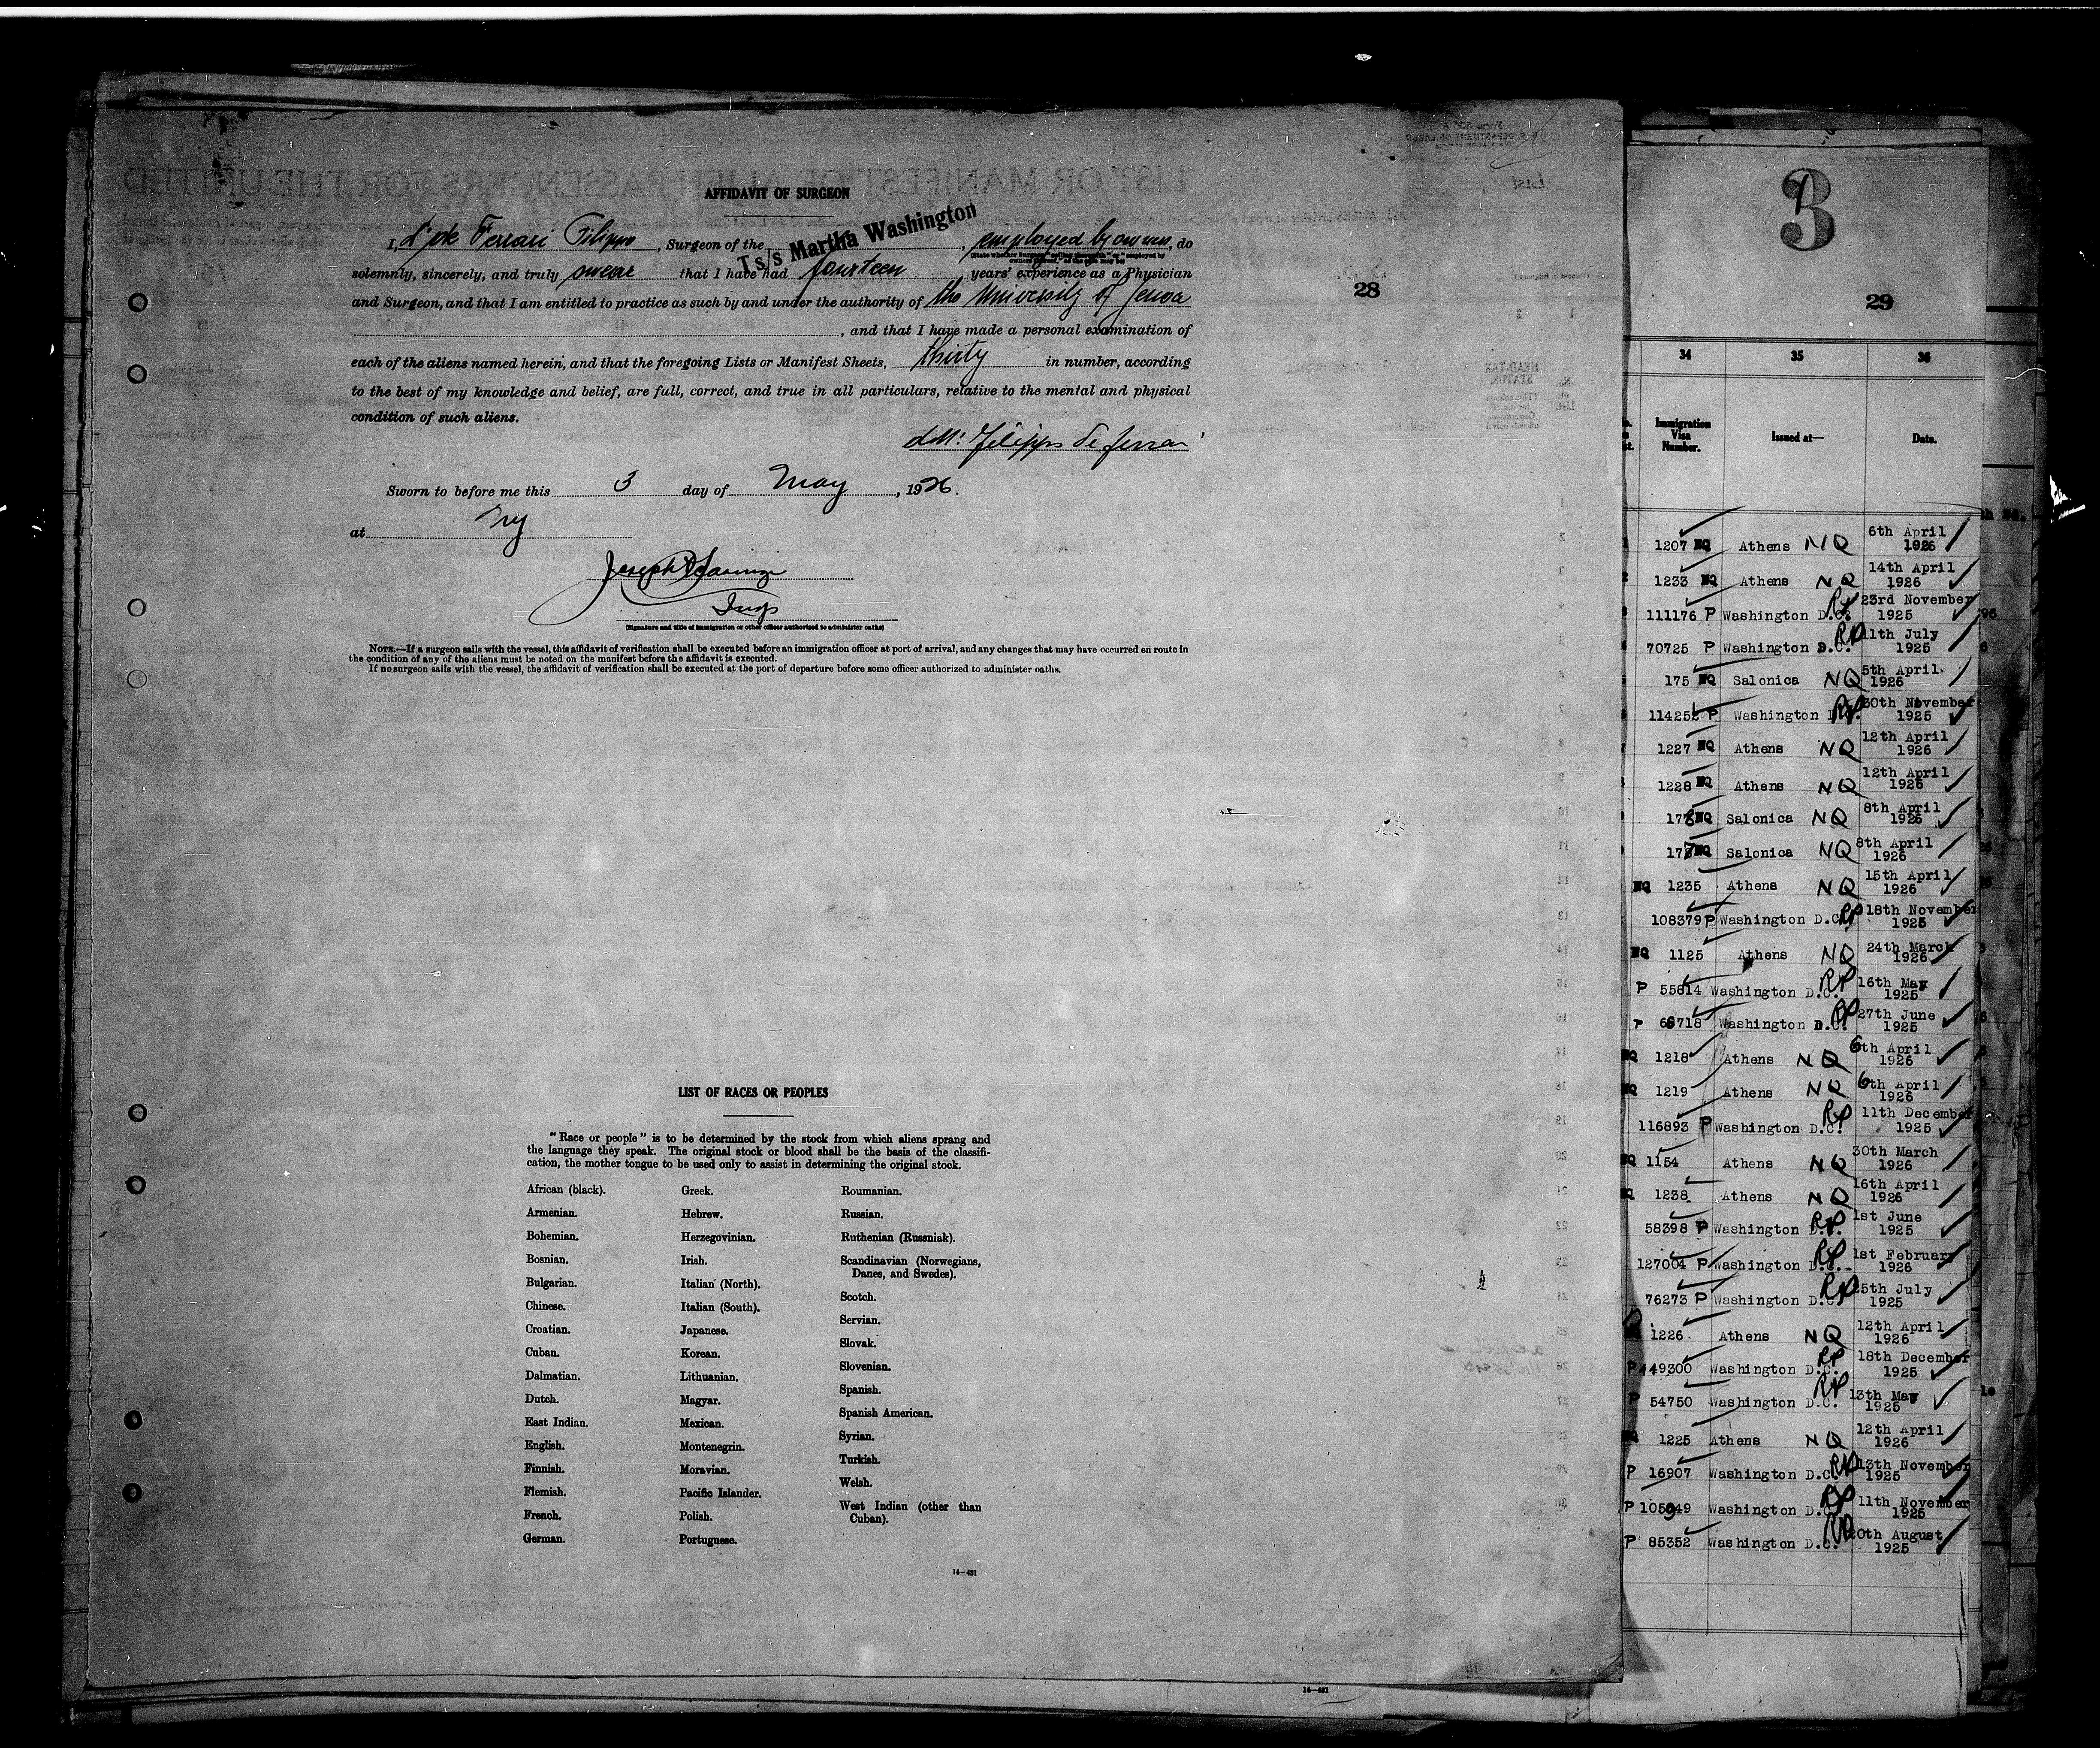 AFFIDAVIT OF SURGEON
I, de Ferrari Filippo, Surgeon of the Ts/s Martha Washington, employed by owners, do
(State whether Surgeon "sailing therewith" or "employed by owners thereof," as the case may be)
solemnly, sincerely, and truly swear that I have had fourteen years' experience as a Physician
and Surgeon, and that I am entitled to practice as such by and under the authority of the University of Jenoa
, and that I have made a personal examination of
each of the aliens named herein, and that the foregoing Lists or Manifest Sheets, thirty in number, according
to the best of my knowledge and belief, are full, correct, and true in all particulars, relative to the mental and physical
condition of such aliens.
Filippo De Ferrari
Sworn to before me this 3 day of May, 1926.
at NY
Joseph
Insp
(Signature and title of immigration or other officer authorized to administer oaths)
NOTE.—If a surgeon sails with the vessel, this affidavit of verification shall be executed before an immigration officer at port of arrival, and any changes that may have occurred en route in
the condition of any of the aliens must be noted on the manifest before the affidavit is executed.
If no surgeon sails with the vessel, the affidavit of verification shall be executed at the port of departure before some officer authorized to administer oaths.
28
LIST OF RACES OR PEOPLES
"Race or people" is to be determined by the stock from which aliens sprang and
the language they speak. The original stock or blood shall be the basis of the classifi-
cation, the mother tongue to be used only to assist in determining the original stock.
African (black).
Armenian.
Bohemian.
Bosnian.
Bulgarian.
Chinese.
Croatian.
Cuban.
Dalmatian.
Dutch.
East Indian.
English.
Finnish.
Flemish.
French.
German.
Greek.
Hebrew.
Herzegovinian.
Irish.
Italian (North).
Italian (South).
Japanese.
Korean.
Lithuanian.
Magyar.
Mexican.
Montenegrin.
Moravian.
Pacific Islander.
Polish.
Portuguese.
Roumanian.
Russian.
Ruthenian (Russniak).
Scandinavian (Norwegians,
Danes, and Swedes).
Scotch.
Servian.
Slovak.
Slovenian.
Spanish.
Spanish American.
Syrian.
Turkish.
Welsh.
West Indian (other than
Cuban).
14—431
14—431
3
29
34 35 36
Immigration Visa Number. Issued at— Date.
1207 NQ Athens NQ 6th April 1926
1233 NQ Athens NQ 14th April 1926
111176 P Washington D.C. RP 23rd November 1925
70725 P Washington D.C. RP 11th July 1925
175 NQ Salonica NQ 5th April 1926
114252 P Washington RP 30th November 1925
1227 NQ Athens NQ 12th April 1926
1228 NQ Athens NQ 12th April 1926
178 NQ Salonica NQ 8th April 1926
177 NQ Salonica NQ 8th April 1926
NQ 1235 Athens NQ 15th April 1926
108379 P Washington D.C. RP 18th November 1925
NQ 1125 Athens NQ 24th March 1926
P 55614 Washington D.C. RP 16th May 1925
P 66718 Washington D.C. RP 27th June 1925
NQ 1218 Athens NQ 6th April 1926
NQ 1219 Athens NQ 6th April 1926
116893 P Washington D.C. RP 11th December 1925
NQ 1154 Athens NQ 30th March 1926
1238 Athens NQ 16th April 1926
58398 P Washington D.C. RP 1st June 1925
127004 P Washington D.C. RP 1st February 1926
76273 P Washington D.C. RP 25th July 1925
1226 Athens NQ 12th April 1926
P 449300 Washington D.C. RP 18th December 1925
P 54750 Washington D.C. RP 13th May 1925
NQ 1225 Athens NQ 12th April 1926
P 16907 Washington D.C. RP 13th November 1925
P 105949 Washington D.C. RP 11th November 1925
P 85352 Washington D.C. RP 20th August 1925